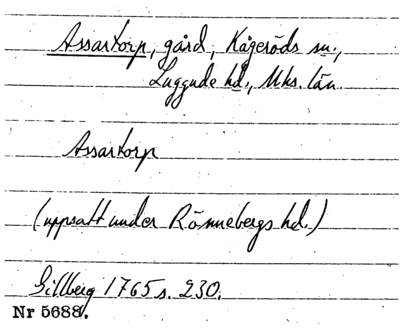 Assartorp, gård, Kågeröds sn.,
Luggude hd., Mks. län.
Assartorp
(uppsatt under Rönnebergs hd.)
Gillberg 1765 s. 230.
Nr 5688.